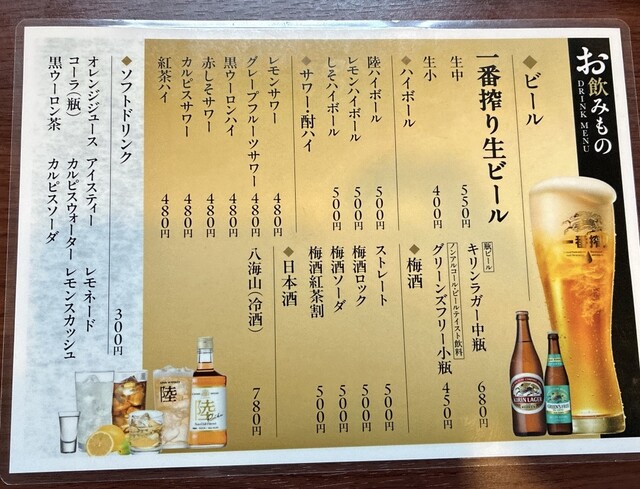 お飲みもの
DRINK MENU
◆ビール
一番搾り生ビール
生中 550円
生小 400円
瓶ビール
キリンラガー中瓶 680円
ノンアルコール・ビールテイスト飲料
グリーンズフリー小瓶 450円
◆ハイボール
陸ハイボール 500円
レモンハイボール 500円
しそハイボール 500円
◆梅酒
ストレート 500円
梅酒ロック 500円
梅酒ソーダ 500円
梅酒紅茶割 500円
◆サワー・酎ハイ
レモンサワー 480円
グレープフルーツサワー 480円
黒ウーロンハイ 480円
赤しそサワー 480円
カルピスサワー 480円
紅茶ハイ 480円
◆日本酒
八海山(冷酒) 780円
◆ソフトドリンク 300円
オレンジジュース アイスティー レモネード
コーラ(瓶) カルピスウォーター レモンスカッシュ
黒ウーロン茶 カルピスソーダ
一番搾
KIRIN LAGER
陸
陸